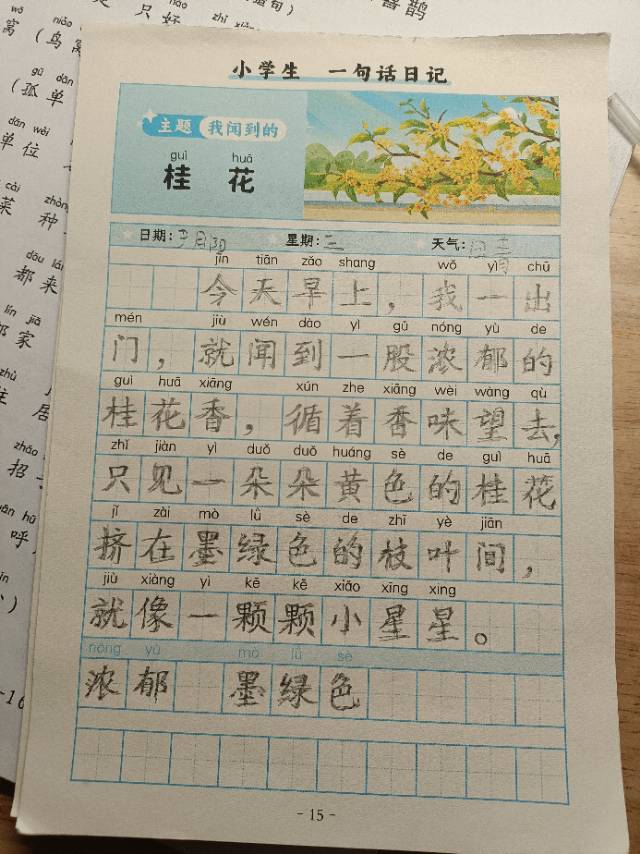 wō niǎo
窝(鸟窝
gū dān
(孤单
dān wèi
单位
cài zhòng
菜 种
dōu lái
都来
lín jiā
邻家
zhù
住 居
zhāo
招
hū
呼
-16
只好
喜鹊
造句)
小学生 一句话日记
主题 我闻到的
guì huā
桂花
日期: 星期:三 天气:
jīn tiān zǎo shang wǒ yì chū
今天早上,我一出
mén jiù wén dào yì gǔ nóng yù de
门,就闻到一股浓郁的
guì huā xiāng xún zhe xiāng wèi wàng qù
桂花香,循着香味望去,
zhǐ jiàn yì duǒ duǒ huáng sè de guì huā
只见一朵朵黄色的桂花
jǐ zài mò lǜ sè de zhī yè jiān
挤在墨绿色的枝叶间,
jiù xiàng yì kē kē xiǎo xīng xing
就像一颗颗小星星。
nóng yù mò lǜ sè
浓郁 墨绿色
- 15 -